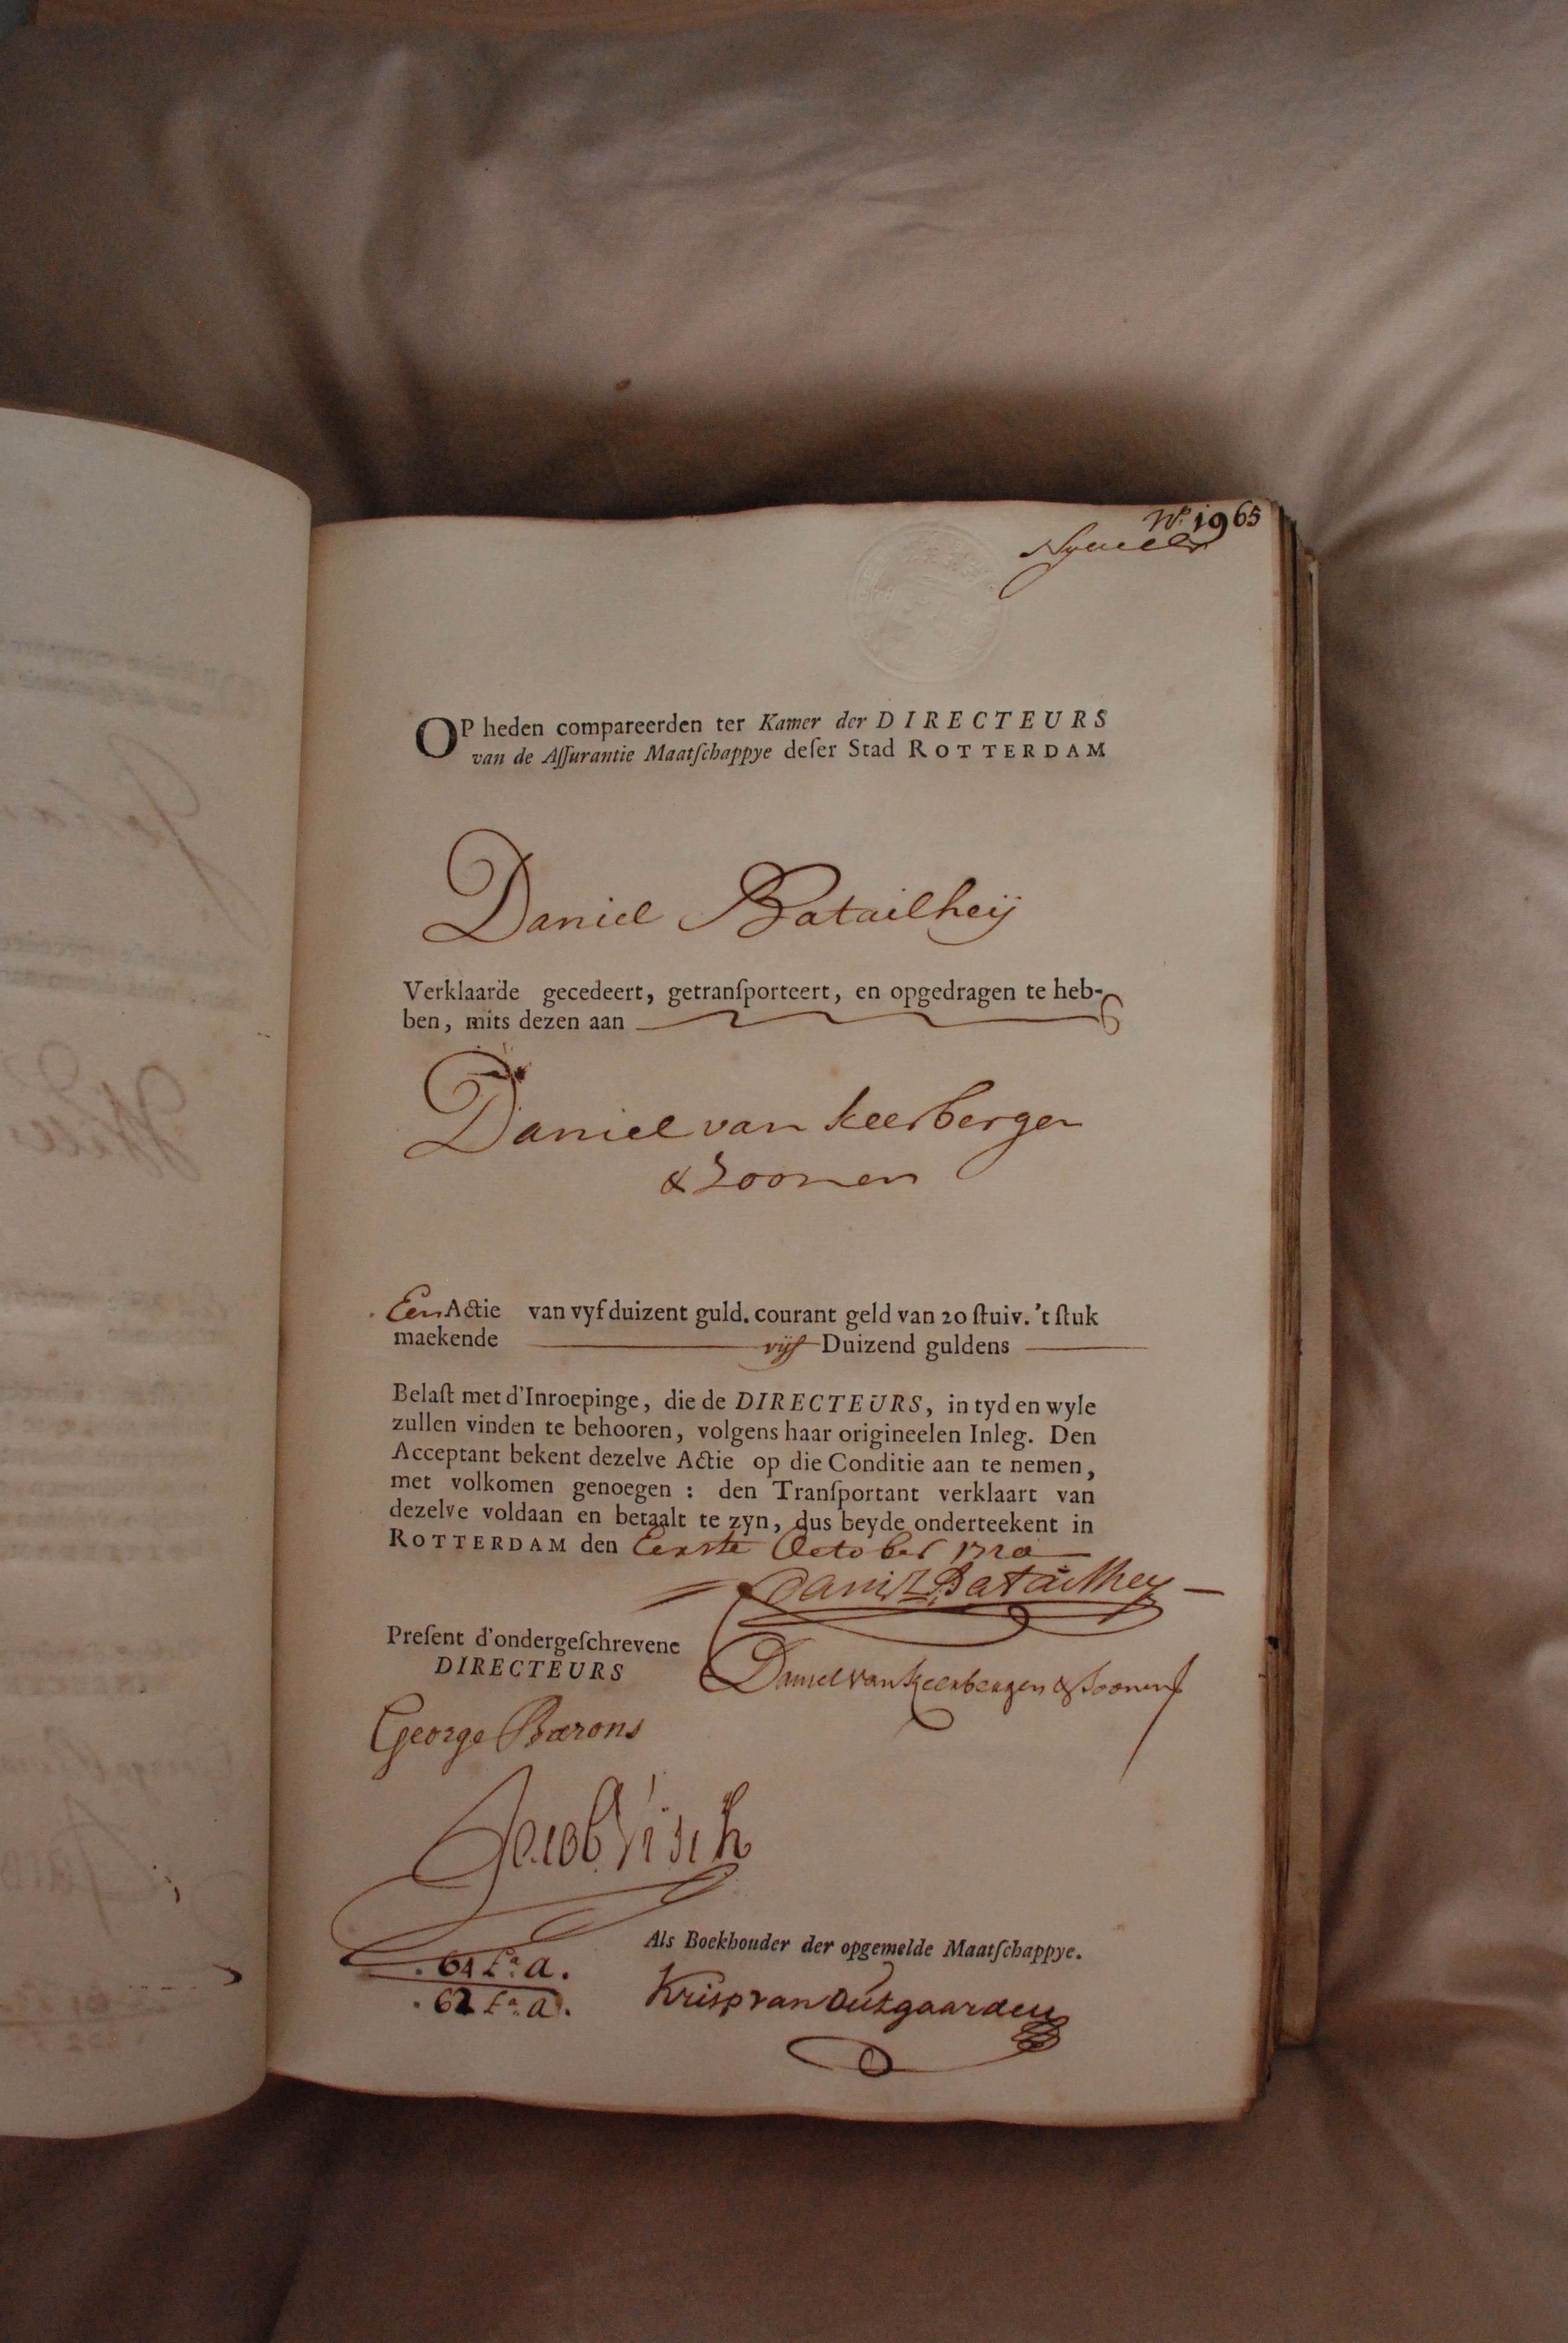 N.º 1965
OP heden compareerden ter Kamer der DIRECTEURS
van de Aſſurantie Maatſchappye deſer Stad ROTTERDAM
Daniel Batailheij
Verklaarde gecedeert, getranſporteert, en opgedragen te heb-
ben, mits dezen aan
Daniel van Keerbergen
& Zoonen
Een Actie van vyf duizent guld. courant geld van 20 ſtuiv. 't ſtuk
maekende vijf Duizend guldens
Belaſt met d'Inroepinge, die de DIRECTEURS, in tyd en wyle
zullen vinden te behooren, volgens haar origineelen Inleg. Den
Acceptant bekent dezelve Actie op die Conditie aan te nemen,
met volkomen genoegen : den Tranſportant verklaart van
dezelve voldaan en betaalt te zyn, dus beyde onderteekent in
ROTTERDAM den Eerste October 1720
Daniel Batailhey
Preſent d'ondergeſchrevene
DIRECTEURS
Daniel van Keerbergen & Soonen
George Barons
Jacob Visch
Als Boekhouder der opgemelde Maatſchappye.
61 Fº. a.
62 Fº. a.
Krisp van Outgaarden